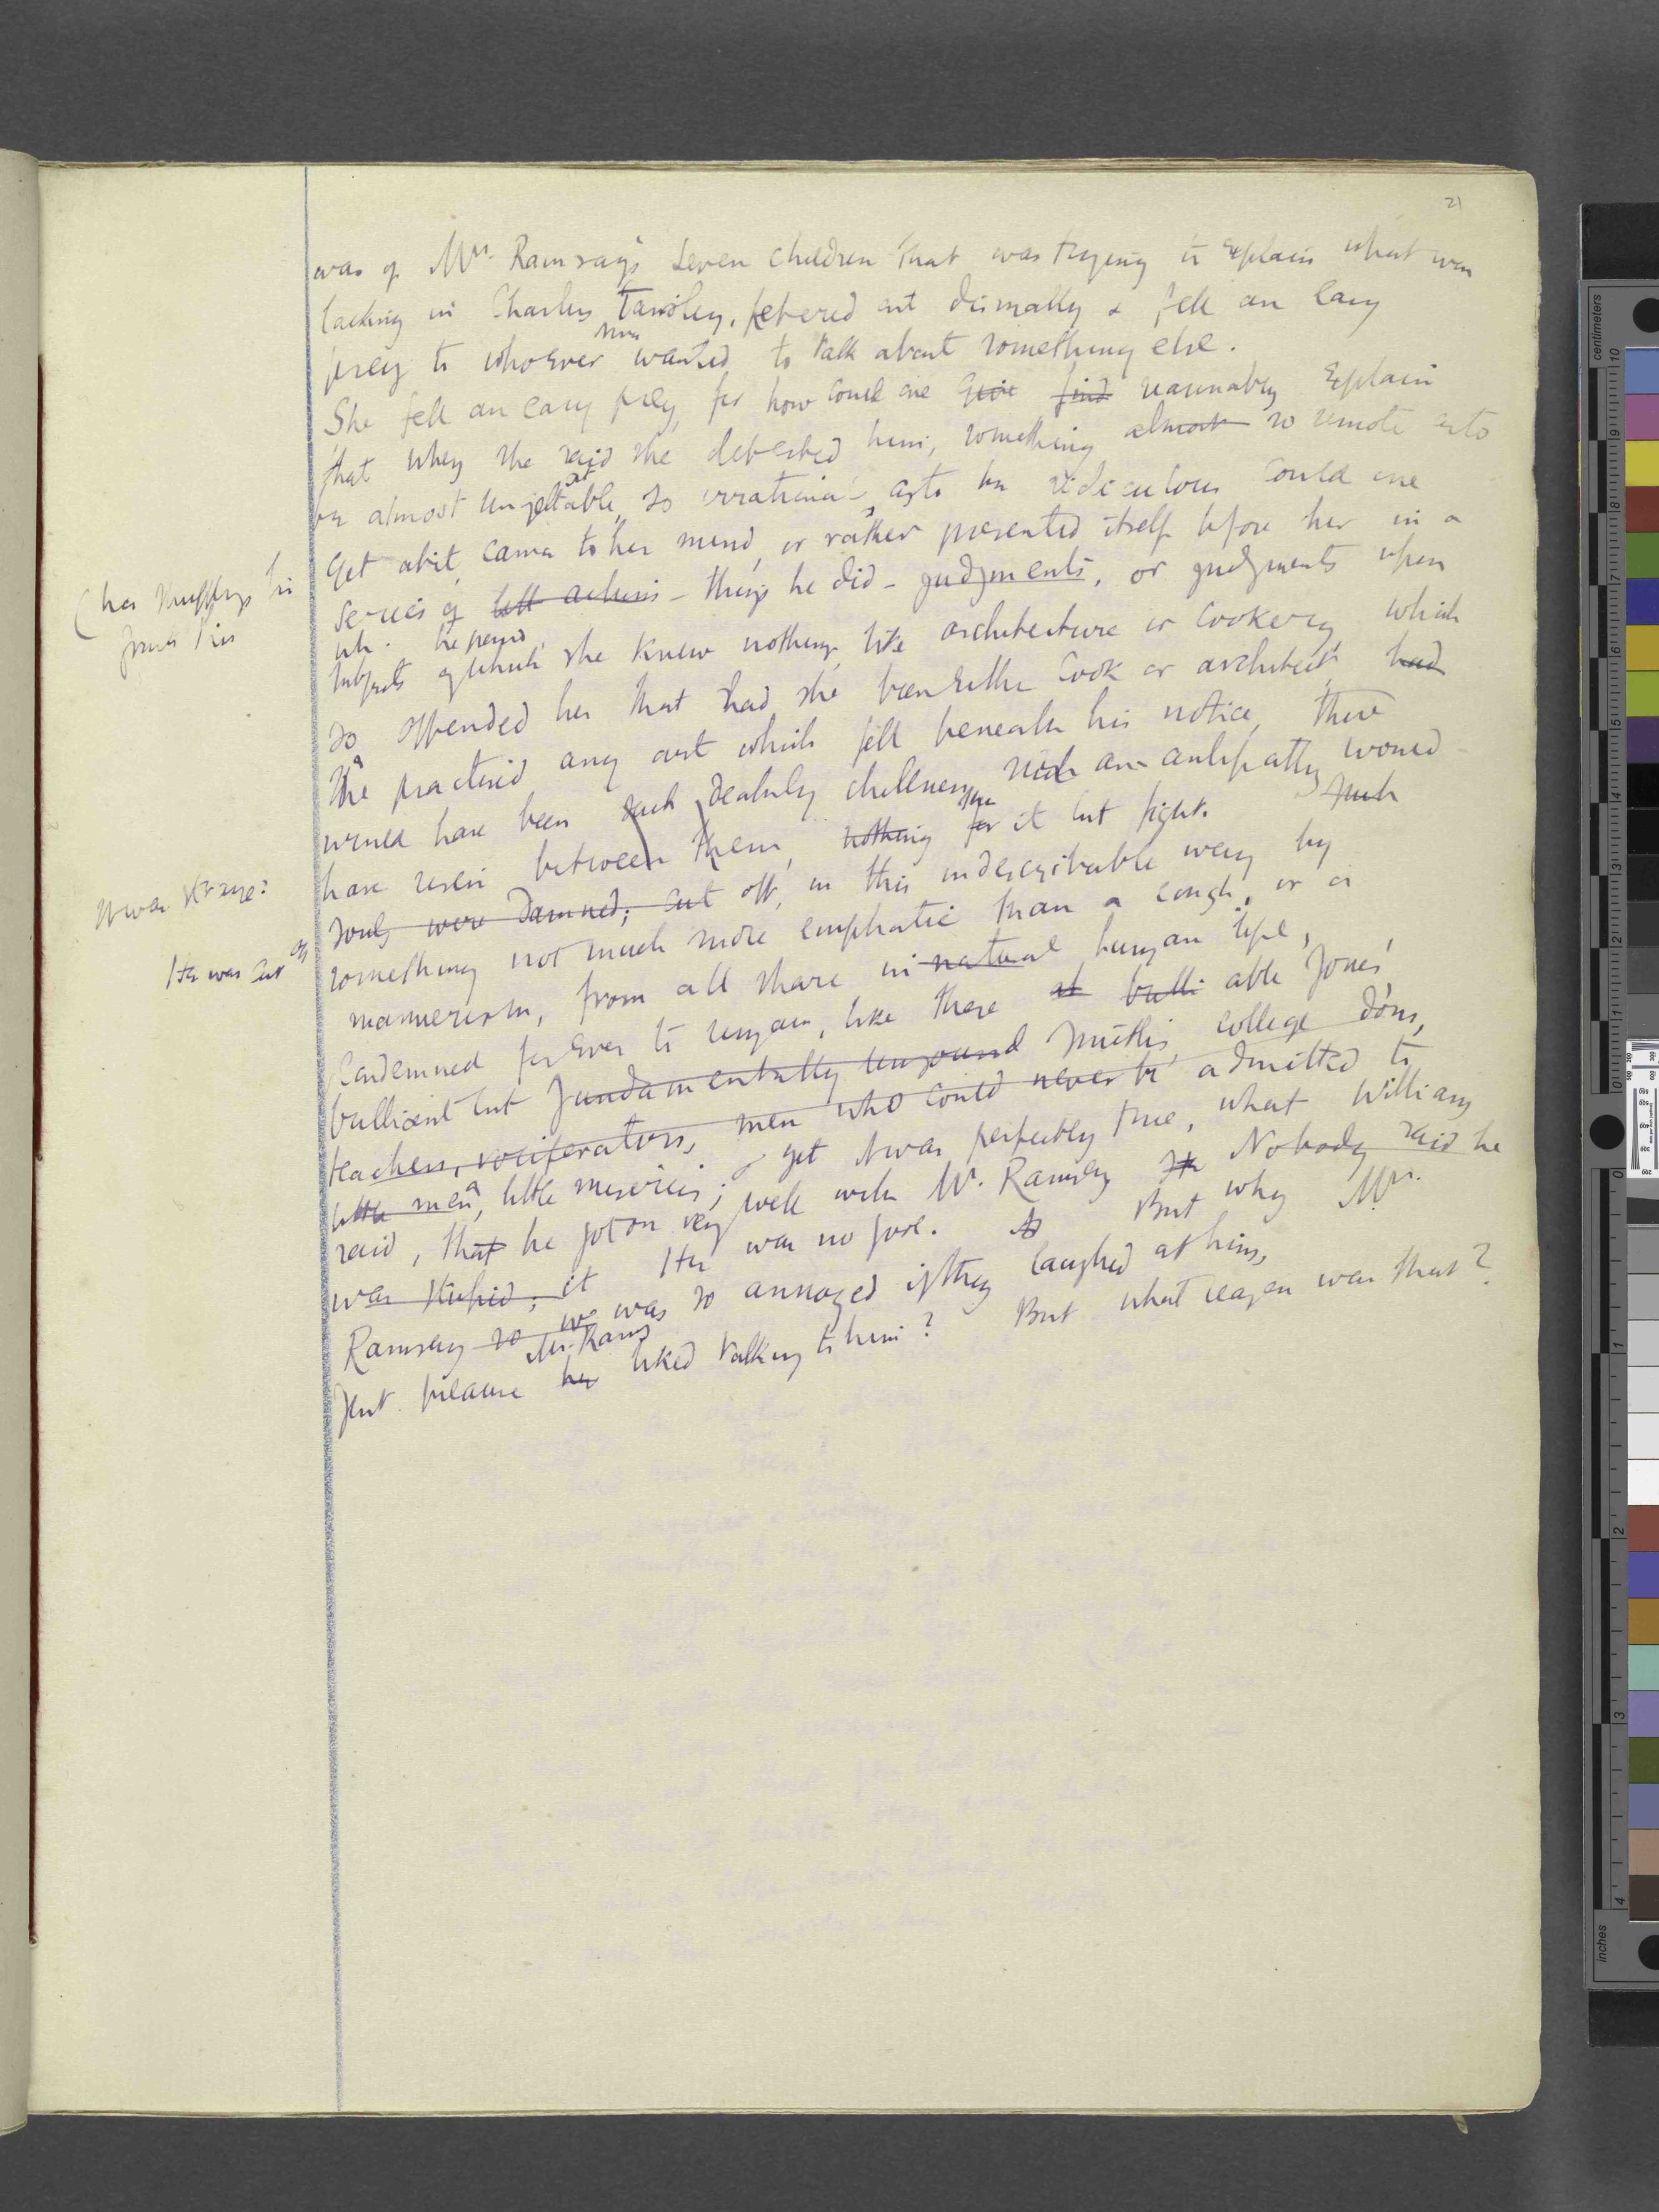 21
was of Mrs. Ramsay's seven children that was trying to explain what was
lacking in Charles Tansley, petered out dismally & fell an easy
prey to whoever wanted to talk about something else.
She fell an easy prey, for how could one give find reasonably explain
that when she said she detested him, something almost so remote as to
be almost ungetatable, so irrational, as to be ridiculous could one
get at it, came to her mind, or rather presented itself before her in a
(his snubbing his
series of actions - things he did - judgments, or judgments upon
wh. he
subjects of which she knew nothing, like architecture or cookery, which
so offended her that had she been either cook or architect, had
she practised any art which fell beneath his notice, there
would have been such deadly chillness, such an antipathy would
such
have risen between them, nothing for it but fight.
It was strange?
He was cut off
souls were damned; cut off, in this indescribable way by
something not much more emphatic than a cough, or a
mannerism, from all share in natural human life,
condemned for ever to remain, like these able Jones'
brilliant but fundamentally unsound Smiths, college dons,
teachers, vociferators, men who could never be admitted to
little men, little miseries; & yet it was perfectly true, what William
said, that he got on very well with Mr. Ramsay Nobody said he
was stupid; it He was no fool. But why Mrs.
Ramsay so was so annoyed if they laughed at him,
Mr. Rams
just because he liked talking to him? But what reason was that?